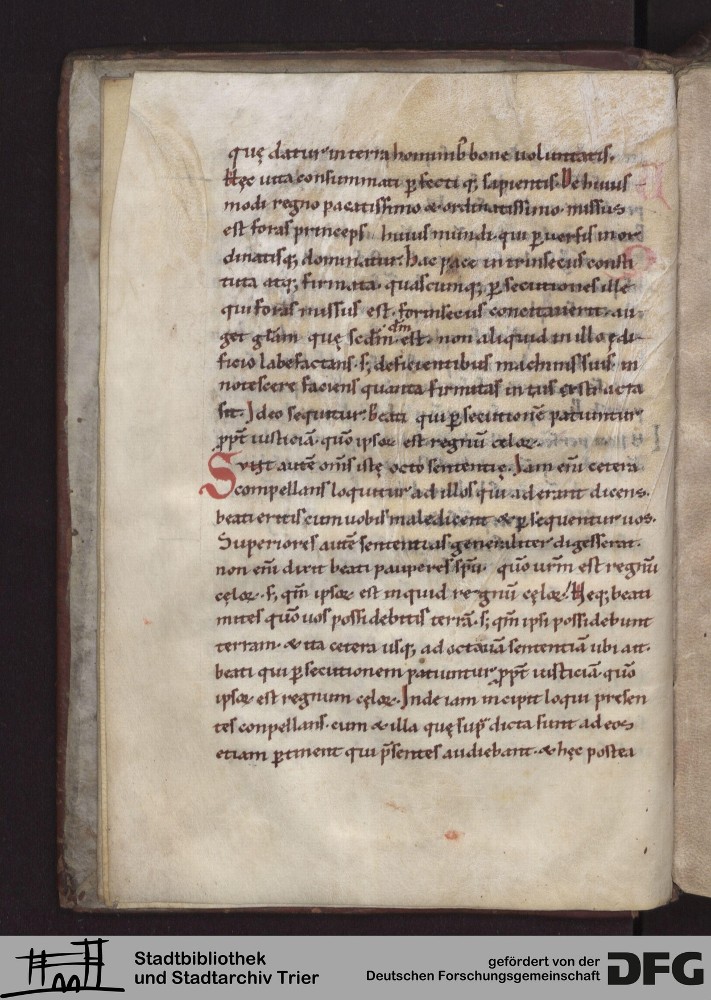 quę datur in terra hominib; bone uoluntatis.
Hęc uita consummati ꝑfecti q; sapientis. De huius
modi regno pacatissimo & ordinatissimo missus
est foras princeps huius mundi. qui ꝑuersis inor
dinatisq; dominatur. hac pace intrinsecus consti
tuta atq; firmata. quascumq; ꝑsecutiones ille
qui foras missus est. forinsecus concitauerit. au
get głam quę scđm đm est. non aliquid in illo ędi
ficio labefactans. s; deficientibus machinis suis. in
notescere faciens quanta firmitas intus extructa
sit. Ideo sequitur. beati qui ꝑsecutionē patiuntur
ꝓpt̄ iusticiā. quō ipsoꝝ est regnū celoꝝ.
Sunt autē om̄s istę octo sententię. Iam eni͞ cetera
compellans loquitur ad illos qui aderant dicens.
beati eritis cum uobis maledicent & ꝑsequentur uos.
Superiores autē sententias generaliter digesserat.
non eni͞ dixit beati pauperes spū. quō urm̄ est regnū
cęloꝝ. s; qm̄ ipsoꝝ est inquid regnū cęloꝝ. Neq; beati
mites quō uos possidebitis terrā. s; qm̄ ipsi possidebunt
terram. & ita cetera usq; ad octauā sententiā ubi ait.
beati qui ꝑsecutionem patiuntur ꝓpt̄ iusticiā. quō
ipsoꝝ est regnum cęloꝝ. Inde iam incipit loqui presen
tes conpellans. cum & illa quę sup̄ dicta sunt ad eos
etiam ꝑtinent qui p̄sentes audiebant. & hęc postea
Stadtbibliothek
und Stadtarchiv Trier
gefördert von der
Deutschen Forschungsgemeinschaft
DFG